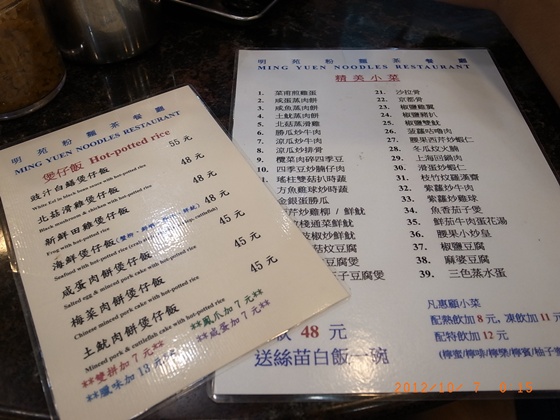 明苑粉麵茶餐廳
MING YUEN NOODLES RESTAURANT
煲仔飯 Hot-potted rice
豉汁白鱔煲仔飯 55 元
White Eel in black bean sauce with hot-potted rice
北菇滑雞煲仔飯 48 元
Black mushroom & chicken with hot-potted rice
新鮮田雞煲仔飯 48 元
Frog with hot-potted rice
海鮮煲仔飯 48 元
咸蛋肉餅煲仔飯 45 元
Salted egg & minced pork cake with hot-potted rice
梅菜肉餅煲仔飯 45 元
Chinese minced pork cake with hot-potted rice
土魷肉餅煲仔飯 45 元
Minced pork & cuttlefish cake with hot-potted rice
**雙拼加 7 元** **鳳爪加 7 元**
**臘味加 13 元** **咸蛋加 7 元**
明苑粉麵茶餐廳
MING YUEN NOODLES RESTAURANT
精美小菜
1. 菜甫煎雞蛋
2. 咸蛋蒸肉餅
3. 咸魚蒸肉餅
4. 土魷蒸肉餅
5. 北菇蒸滑雞
6. 勝瓜炒牛肉
7. 涼瓜炒牛肉
8. 涼瓜炒排骨
9. 欖菜肉碎四季豆
10. 四季豆炒腩仔肉
瑤柱雙菇扒時蔬
方魚雞球炒時蔬
金銀蛋勝瓜
芹炒雞柳 / 鮮魷
菇炆豆腐
子豆腐煲
21. 沙拉骨
22. 京都骨
23. 椒鹽雞翼
24. 椒鹽豬扒
25. 椒鹽雙魷
26. 菠蘿咕嚕肉
27. 腰果西芹炒蝦仁
28. 冬瓜炆火腩
29. 上海回鍋肉
30. 滑蛋炒蝦仁
31. 枝竹炆羅漢齋
32. 紫蘿炒牛肉
33. 紫蘿炒雞球
34. 魚香茄子煲
35. 鮮茄牛肉蛋花湯
36. 腰果小炒皇
37. 椒鹽豆腐
38. 麻婆豆腐
39. 三色蒸水蛋
48 元
送絲苗白飯一碗
凡惠顧小菜
配熱飲加 8 元, 凍飲加 11 元
配特飲加 12
2012/10/ 7